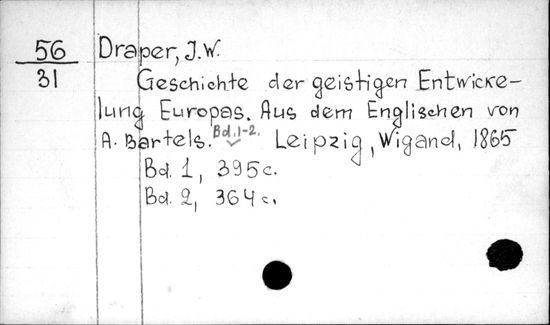 56 Draper, J.W.
31 Geschichte der geistigen Entwicke-
lung Europas. Aus dem Englischen von
A. Bartels. Bd. 1-2. Leipzig, Wigand, 1865
Bd. 1, 395 c.
Bd. 2, 364 c.